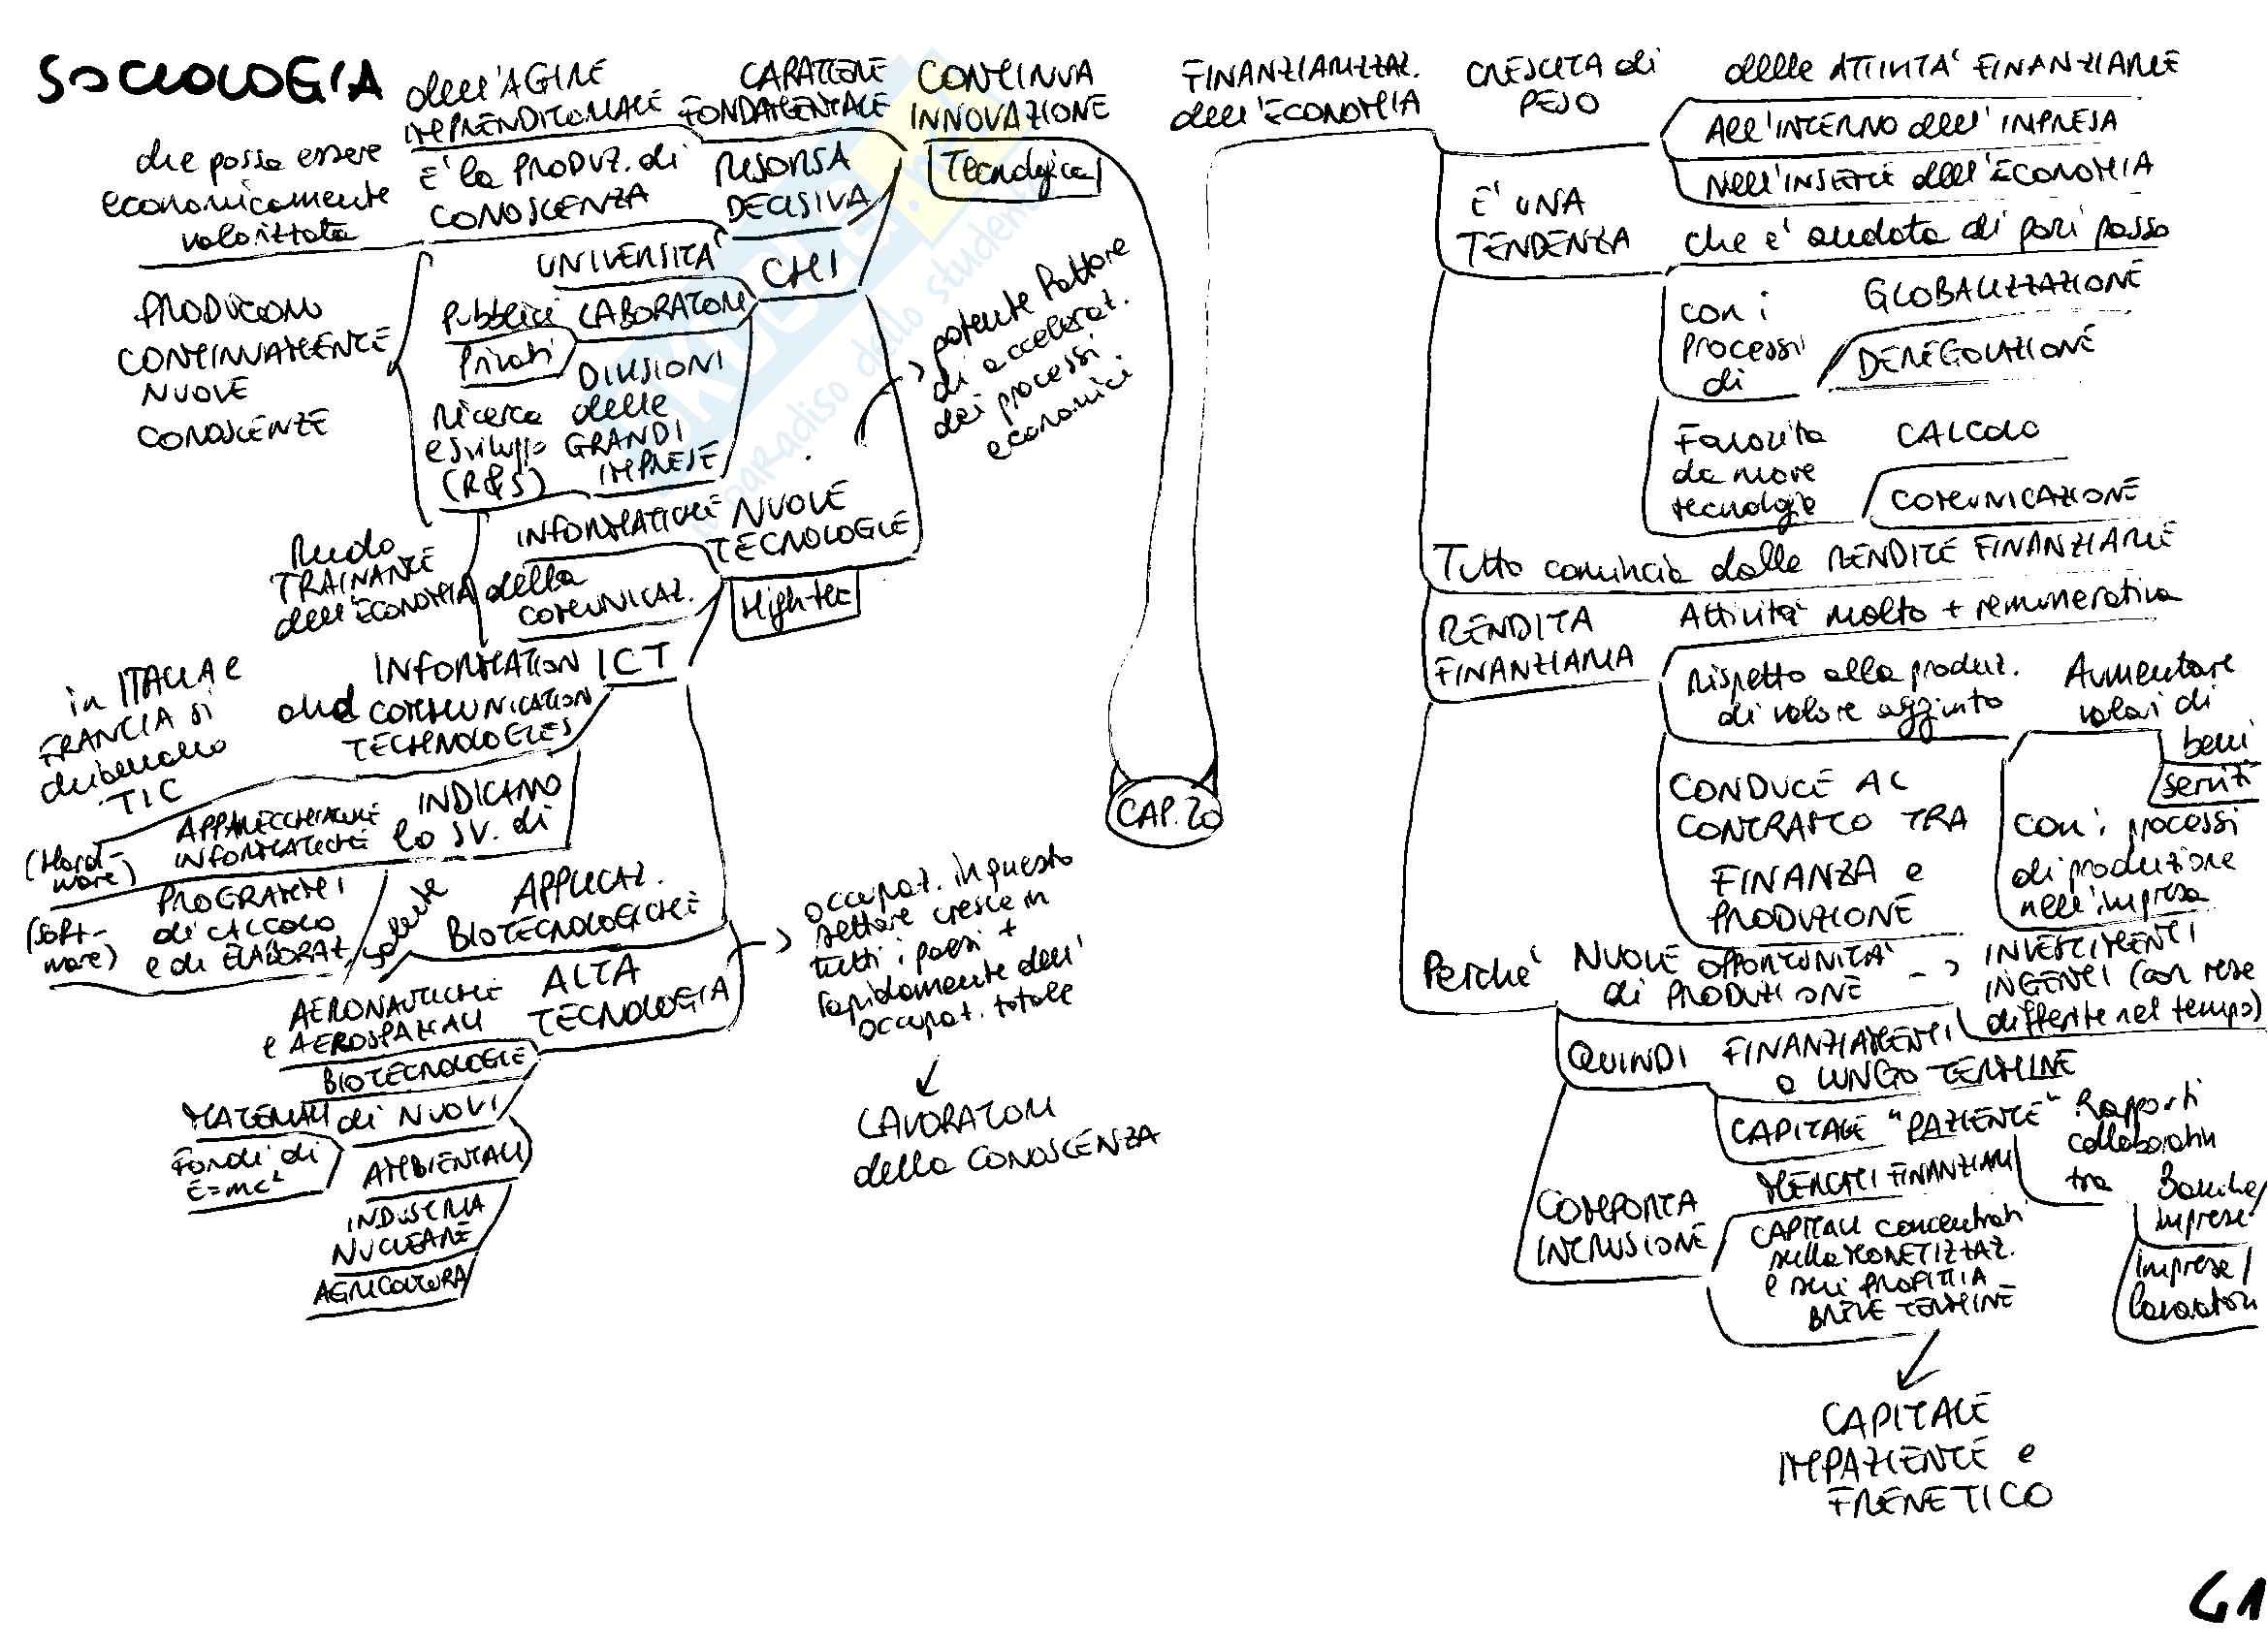 SOCIOLOGIA
dell'AGIRE
IMPRENDITORIALE
CARATTERE
FONDAMENTALE
CONTINUA
INNOVAZIONE
Tecnologica
che possa essere
economicamente
valorizzata
E' la PRODUZ. di
CONOSCENZA
RISORSA
DECISIVA
CHI
UNIVERSITA'
Pubblici LABORATORI
Privati
DIVISIONI
Ricerca delle
e sviluppo GRANDI
(R&S) IMPRESE
PRODUCONO
CONTINUAMENTE
NUOVE
CONOSCENZE
potente fattore
di accelerat.
dei processi
economici
NUOVE
TECNOLOGIE
High tec
INFORMATICHE
della
COMUNICAZ.
Ruolo
TRAINANTE
dell'ECONOMIA
ICT
INFORMATION
and COMMUNICATION
TECHNOLOGIES
in ITALIA e
FRANCIA si
chiamano
TIC
INDICANO
lo SV. di
APPARECCHIATURE
INFORMATICHE
(Hard-
ware)
PROGRAMMI
di CALCOLO
e di ELABORAT.
(Soft-
ware)
APPLICAZ.
BIOTECNOLOGICHE
ALTA
TECNOLOGIA
AERONAUTICHE
e AEROSPAZIALI
BIOTECNOLOGIE
MATERIALI di NUOVI
Fondi di
E=mc²
AMBIENTALI
INDUSTRIA
NUCLEARE
AGRICOLTURA
occupat. in questo
settore cresce in
tutti i paesi +
rapidamente dell'
occupat. totale
LAVORATORI
della CONOSCENZA
CAP. 20
FINANZIARIZZAZ.
dell'ECONOMIA
CRESCITA di
PESO
delle ATTIVITA' FINANZIARIE
All'INTERNO dell'IMPRESA
Nell'INSIEME dell'ECONOMIA
E' UNA
TENDENZA
che e' andata di pari passo
con i
processi
di
GLOBALIZZAZIONE
DEREGOLAZIONE
Favorita
da nuove
tecnologie
CALCOLO
COMUNICAZIONE
Tutto comincia dalle RENDITE FINANZIARIE
RENDITA
FINANZIARIA
Attivita' molto + remunerativa
Rispetto alla produz.
di valore aggiunto
Aumentare
valori di
beni
servizi
con i processi
di produzione
nell'impresa
CONDUCE AL
CONTRASTO TRA
FINANZA e
PRODUZIONE
Perche'
NUOVE OPPORTUNITA'
di PRODUZIONE
INVESTIMENTI
INGENTI (con rese
differite nel tempo)
QUINDI
FINANZIAMENTI
a LUNGO TERMINE
CAPITALE "PAZIENTE"
Rapporti
collaborativi
tra
Banche/
imprese
Imprese/
lavoratori
COMPORTA
INTRUSIONE
MERCATI FINANZIARI
CAPITALI concentrati
sulla MONETIZZAZ.
e sui PROFITTI A
BREVE TERMINE
CAPITALE
IMPAZIENTE e
FRENETICO
41